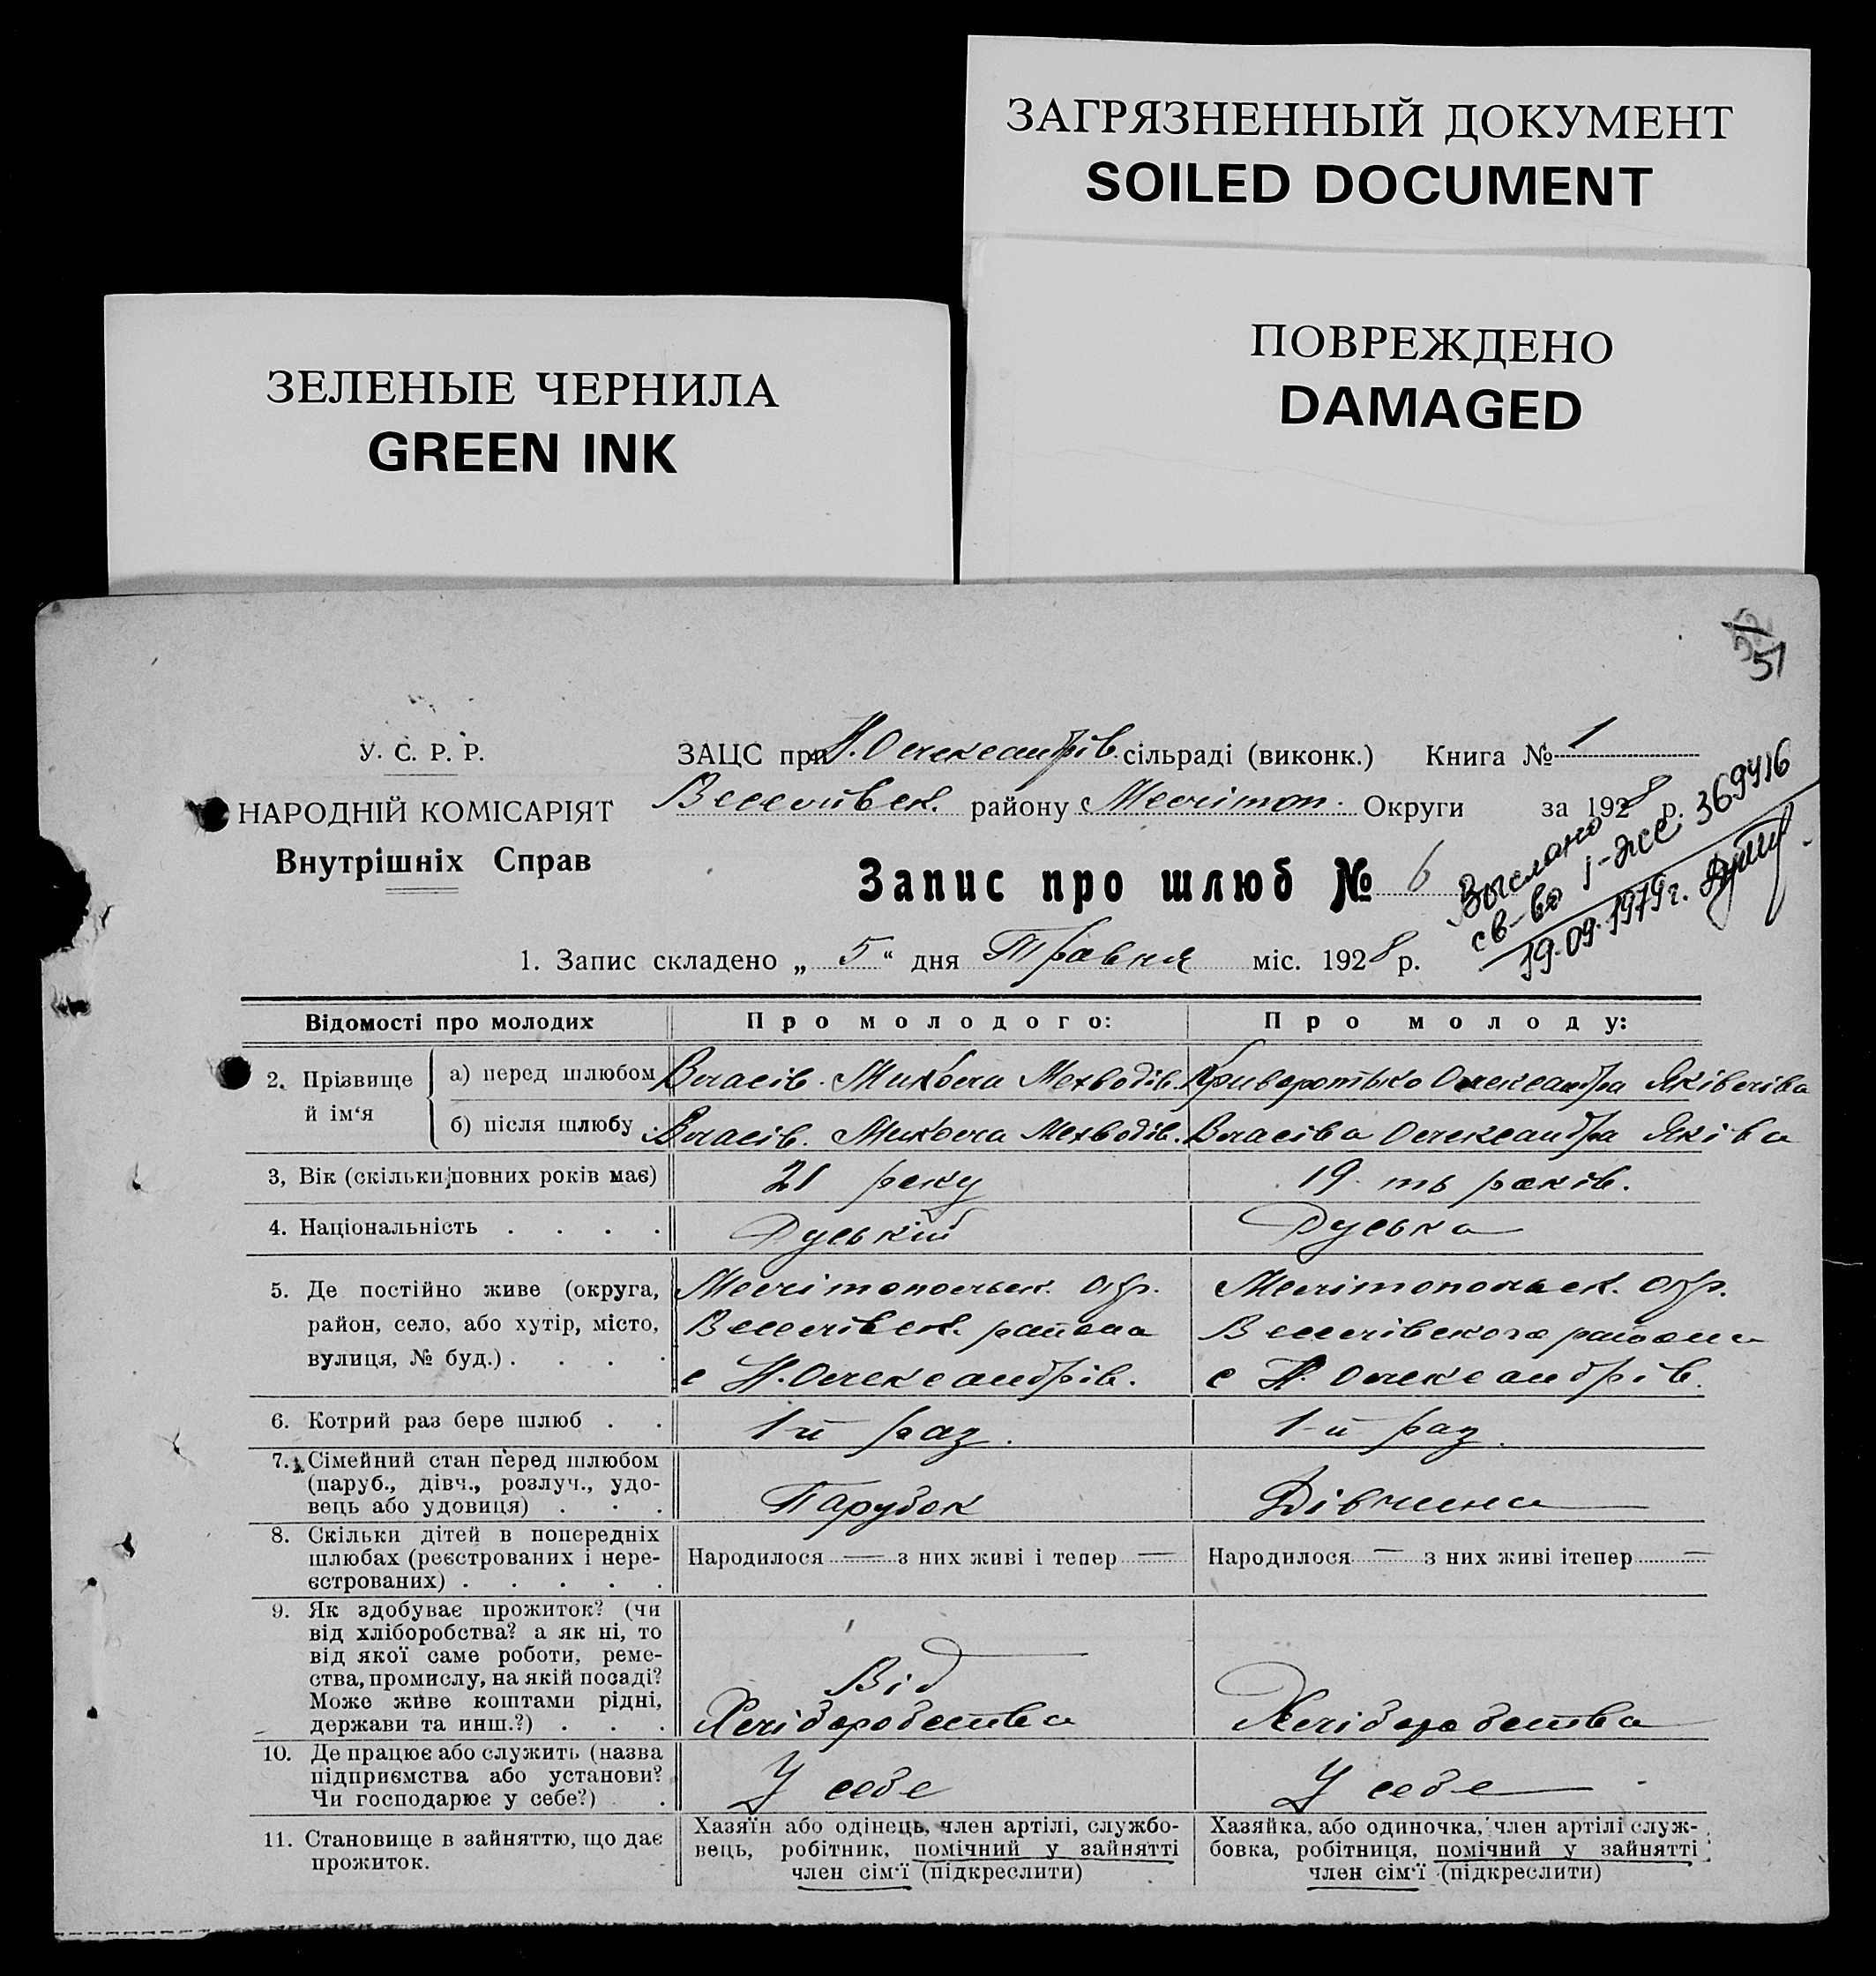 ЗАГРЯЗНЕННЫЙ ДОКУМЕНТ
SOILED DOCUMENT
ПОВРЕЖДЕНО
DAMAGED
ЗЕЛЕНЫЕ ЧЕРНИЛА
GREEN INK
51
У. С. Р. Р.
НАРОДНІЙ КОМІСАРІЯТ
Внутрішніх Справ
ЗАЦС при Н. Олександрів. сільраді (виконк.) Книга № 1
Веселівск. району Мелітоп. Округи за 1928 р.
Запис про шлюб № 6
Выслано
св-во I-ЖС 369416
19.09.1979г.
1. Запис складено „ 5 “ дня Травня міс. 1928 р.
Відомості про молодих Про молодого: Про молоду:
2. Прізвище й ім‘я а) перед шлюбом Власів. Микола Мехводів. Криворотько Олександра Яківлівa
б) після шлюбу Власів. Микола Мехводів. Власіва Олександра Яківа
3, Вік (скільки повних років має) 21 року 19-ть років.
4. Національність . . . . Руський Руська
5. Де постійно живе (округа, Мелітопольск. окр. Мелітопольск. окр.
район, село, або хутір, місто, Веселівск. района Веселівского района
вулиця, № буд.) . . . . с Н. Олександрів. с Н. Олександрів.
6. Котрий раз бере шлюб . . 1-й раз. 1-й раз.
7. Сімейний стан перед шлюбом
(паруб., дівч., розлуч., удо-
вець або удовиця) . . . Парубок Дівчина
8. Скільки дітей в попередніх
шлюбах (реєстрованих і нере- Народилося — з них живі і тепер — Народилося — з них живі ітепер —
єстрованих) . . . . .
9. Як здобуває прожиток? (чи
від хліборобства? а як ні, то
від якої саме роботи, реме-
ства, промислу, на якій посаді? Від
Може живе коштами рідні,
держави та инш.?) . . . Хліборобства Хліборобства
10. Де працює або служить (назва
підприємства або установи?
Чи господарює у себе?) . У себе У себе
11. Становище в зайняттю, що дає
прожиток.
Хазяїн або одінець, член артілі, службо-
вець, робітник, помічний у зайнятті
член сім‘ї (підкреслити)
Хазяйка, або одиночка, член артілі служ-
бовка, робітниця, помічний у зайнятті
член сім‘ї (підкреслити)